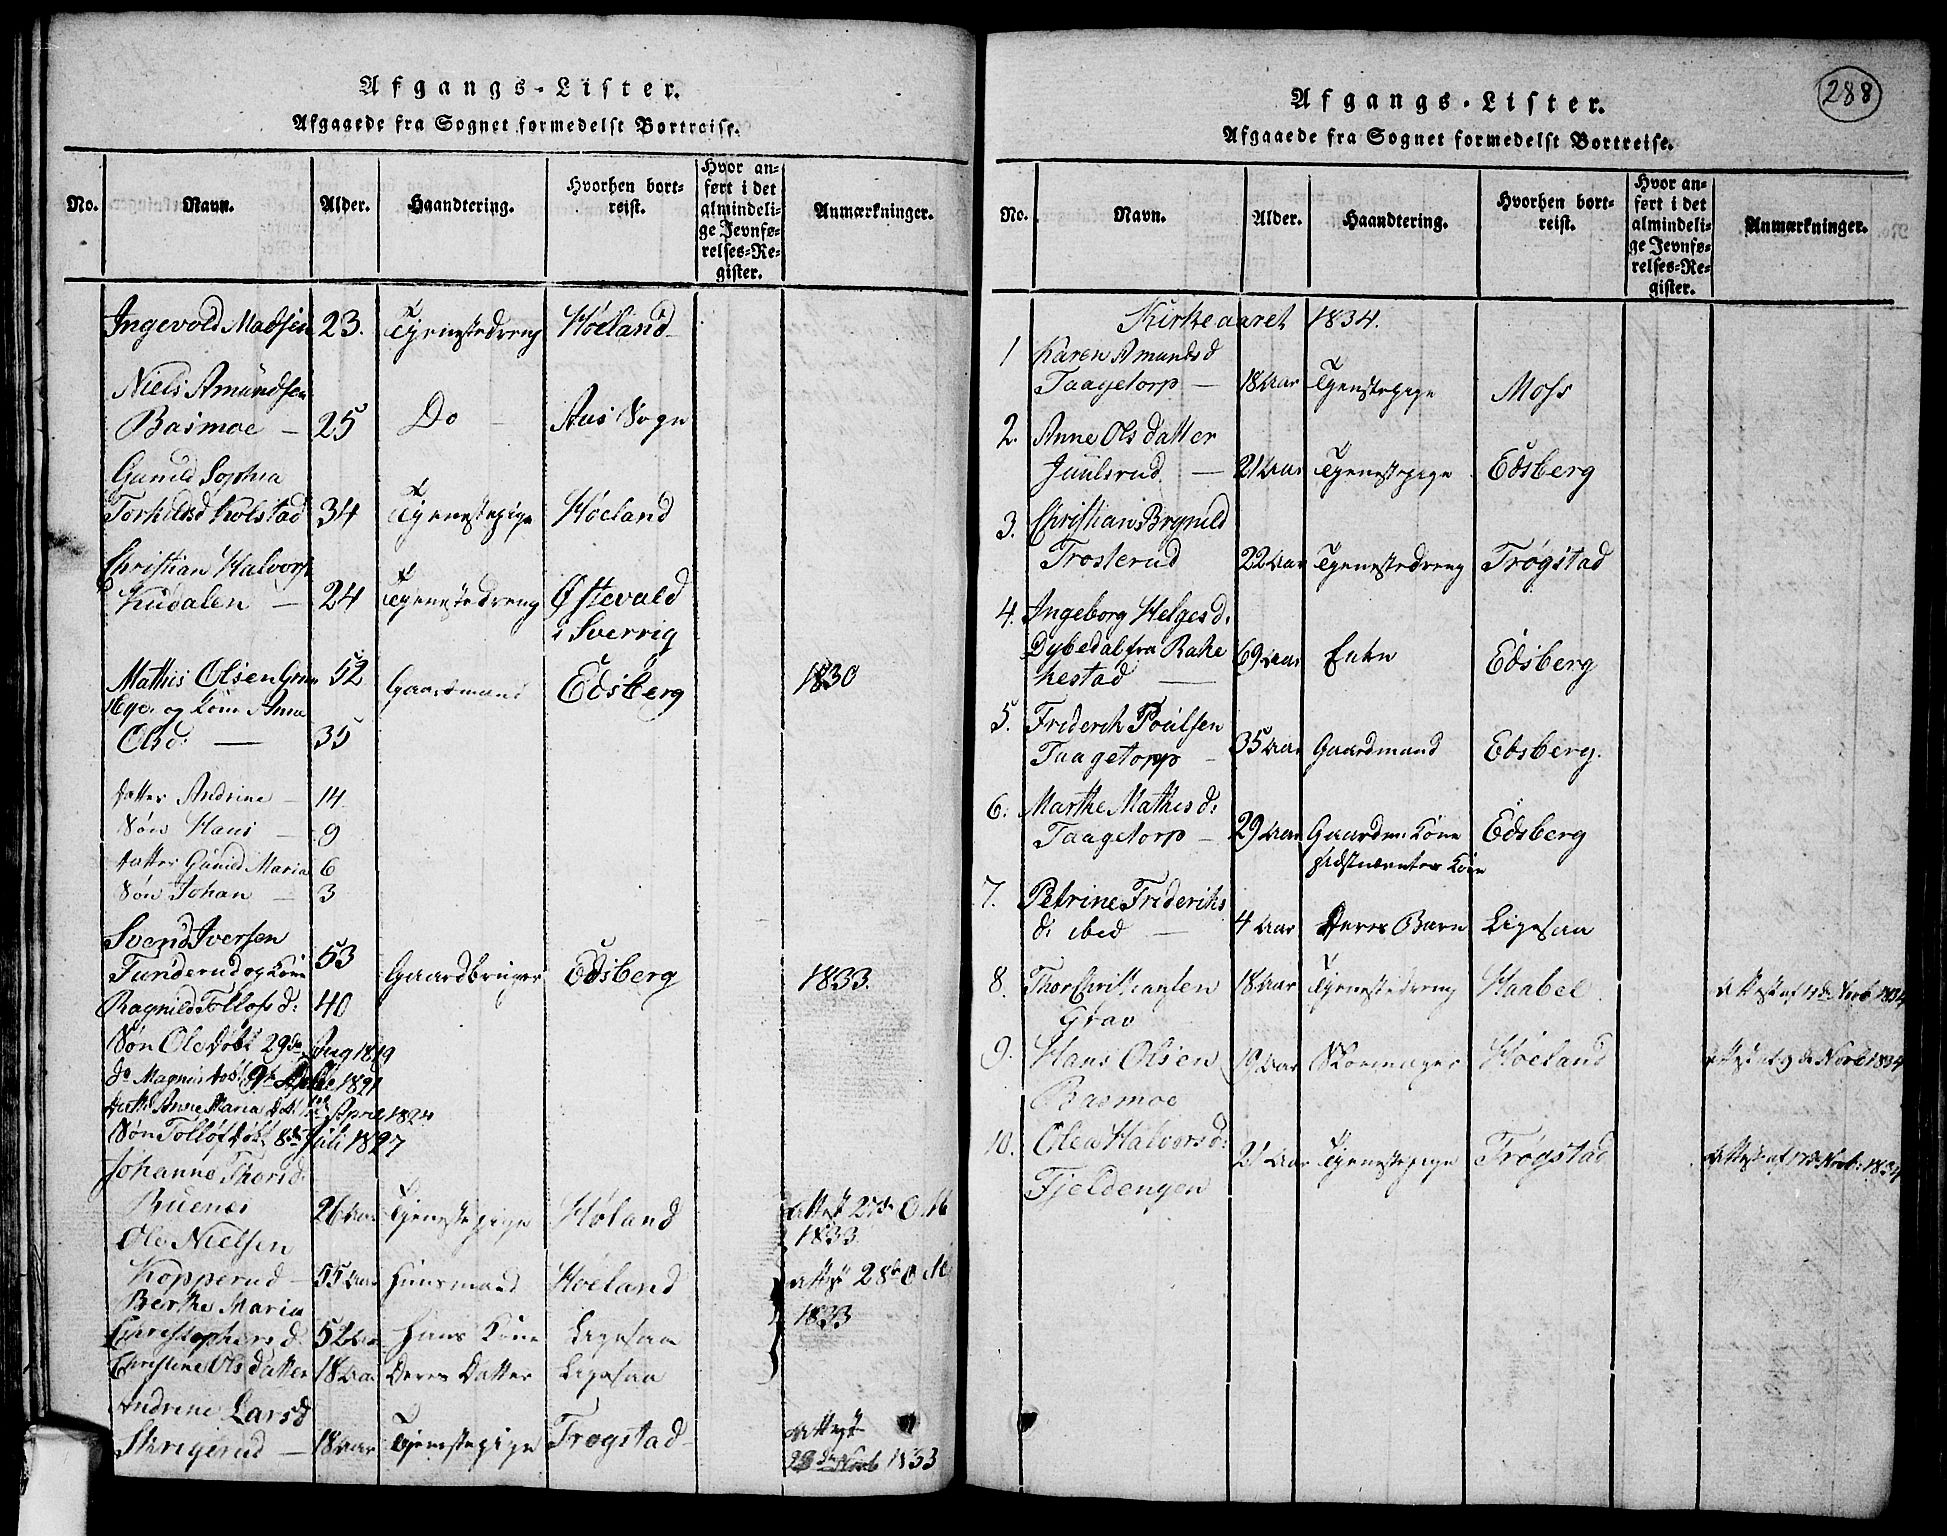 Afgangs-Lister.
Afgaaede fra Sognet formedelst Bortreise.
No. Navn. Alder. Haandtering. Hvorhen bortreist. Hvor anført i det almindelige Jevnførelses-Register. Anmærkninger.
Ingevold Madsen 23. Tjenestedreng Høeland
Niels Amundsen
Basmoe — 25 Do — Aas Sogn
Gunild Sophia
Torkildsd Kolstad 34 Tjenestepige Høeland
Christian Halvors
Kudalen — 24 Tjenestedreng Østevald
i Sverrig
Mathis Olsen 52 Gaardmand Edsberg 1830
og Kone Anne
Olsd: — 35
Datter Andrine — 14
Søn Hans — 9
Datter Gunild Maria 6
Søn Johan — 3
Svend Iversen
Funderud og Kone 53 Gaardbruger Edsberg 1833.
Ragnild Tollofsd: 40
Søn Ole døbt 29de Aug 1819
do Magnus døbt 1821
Datt: Anne Maria døbt April 1824
Søn Tollof døbt 8de Juli 1827
Johanne Thorsd:
Buenes 26 Aar Tjenestepige Høland Attest 27de Oct
1833.
Ole Nielsen
Kopperud — 55 Aar Huusmand Høeland Attest 28de Oct
1833
Berthe Maria
Christophersd 52 Aar Hans Kone Ligesaa
Christine Olsdatter 18 Aar Deres Datter Ligesaa
Andrine Larsd
Skrigerud — 18 Aar Tjenestepige Trøgstad Attest
23de Novb 1833
288
Afgangs-Lister.
Afgaaede fra Sognet formedelst Bortreise.
No. Navn. Alder. Haandtering. Hvorhen bortreist. Hvor anført i det almindelige Jevnførelses-Register. Anmærkninger.
Kirkeaaret 1834.
1 Karen Amundsd
Taagetorp — 18 Aar Tjenestepige Moss
2. Anne Olsdatter
Juulsrud — 21 Aar Tjenestepige Edsberg
3. Christian Brynild
Trosterud 22 Aar Tjenestedreng Trøgstad
4. Ingeborg Helgesd:
Dybedal fra Rakkestad — 69 Aar Enke Edsberg
5. Friderich Poulsen
Taagetorp — 35 Aar Gaardmand Edsberg.
6. Marthe Mathisd:
Taagetorp — 29 Aar Gaardm: Kone Edsberg
sidstnævntes Kone
7. Petrine Frideriks
d: ibid — 4 Aar Deres Barn Ligesaa
8. Thor Christiansen 18 Aar Tjenestedreng Haabel Attest af 4de Novb 1834
Grav
9. Hans Olsen 19 Aar Skomager Høeland Attest af 9de Novb 1834
Basmoe
10. Olea Halvorsd: 21 Aar Tjenestepige Trøgstad Attest af 17de Novb. 1834
Fjeldengen